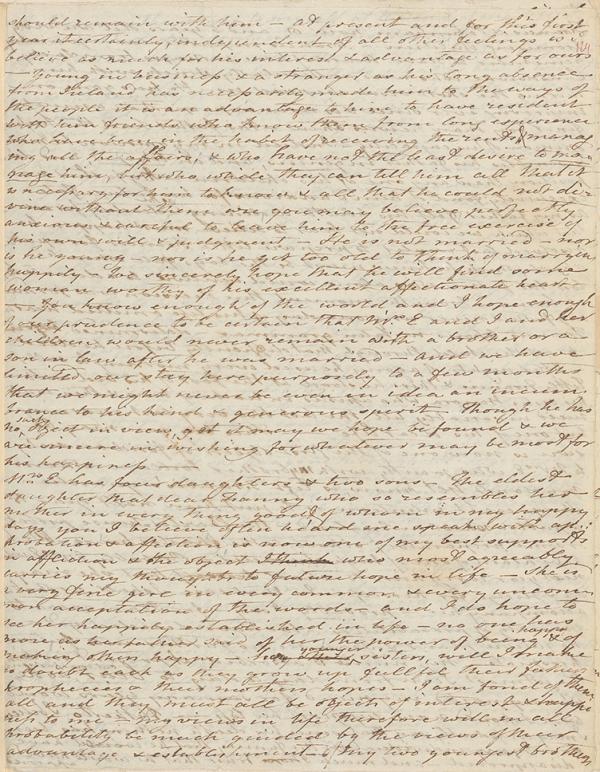 should remain with him – at present and for this first
year it certainly, independent of all other feelings we
believe as much for his interest & advantage as for ours
124
– Young in business & a stranger as his long absence
from Ireland has necessarily made him to the ways of
the people it is an advantage to him to have resident
with him friends who know them from long experience
who have been in the habit of receiving the rents & manag
ing all the affairs, & who have not the least desire to ma
nage him, but who while they can tell him all that it
is necessary for him to know & all that he could not di-
vine without them are you may believe perfectly
anxious & careful to leave him to the free exercise of
his own will & judgment – He is not married – nor
is he young – nor is he yet too old to think of marrying
happily – We sincerely hope that he will find some
woman worthy of his excellent affectionate heart
– You know enough of the world and I hope enough
of our prudence to be certain that Mrs E and I and her
children would never remain with a brother or a
son in law after he was married – and we have
limited our stay here purposely to a few months
that we might never be even in idea an incum
brance to his kind & generous spirit – Though he has
no such object in view, yet it may we hope be found & we
are sincere in wishing for whatever may be most for
his happiness –
Mrs E has four daughters & two sons – The eldest
daughter that dear Fanny who so resembles her
mother in every thing good & of whom in my happy
days you I believe often heard me speak with ap
probation & affection is now one of my best supports
in affliction & the object I think who most agreeably
carries my thoughts to future hope in life – She is
a very fine girl in every common & every uncom
mon acceptation of the words – and I do hope to
see her happily established in life – no one has
more as her father said of her the power of being happy & of
making others happy – her younger sisters, will I make
no doubt each as they grow up fulfil their father's
prophecies & their mothers hopes – I am fond of them
all and they must all be objects of interest & happi
ness to me – my views in life therefore will in all
probability be much guided by the views of their
advantage & establishment & of my two youngest brothers